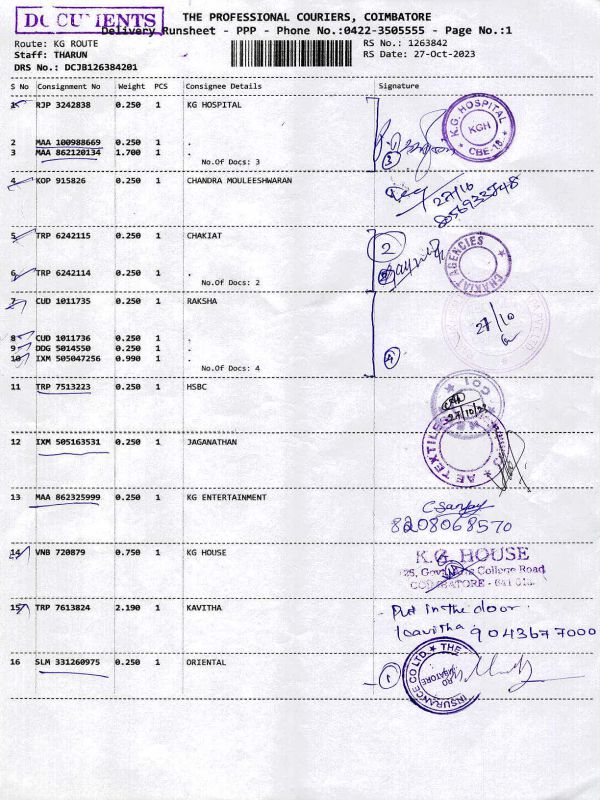 DOCUMENTS
THE PROFESSIONAL COURIERS, COIMBATORE
Delivery Runsheet - PPP - Phone No.:0422-3505555 - Page No.:1
Route: KG ROUTE
RS No.: 1263842
Staff: THARUN
RS Date: 27-Oct-2023
DRS No.: DCJB126384201
S No Consignment No Weight PCS Consignee Details Signature
1 RJP 3242838 0.250 1 KG HOSPITAL
K.G. HOSPITAL
KGH
CBE-18
2 MAA 100988669 0.250 1 .
3 MAA 862120134 1.700 1 .
No.Of Docs: 3
3
4 KOP 915826 0.250 1 CHANDRA MOULEESHWARAN
27/10
5 TRP 6242115 0.250 1 CHAKIAT
2
CHAKIAT AGENCIES
6 TRP 6242114 0.250 1 .
No.Of Docs: 2
7 CUD 1011735 0.250 1 RAKSHA
27/10
8 CUD 1011736 0.250 1 .
9 DDG 5014550 0.250 1 .
10 IXM 505047256 0.990 1 .
No.Of Docs: 4
4
11 TRP 7513223 0.250 1 HSBC
27/10/23
12 IXM 505163531 0.250 1 JAGANATHAN
AE TEXTILES
13 MAA 862325999 0.250 1 KG ENTERTAINMENT
8208068570
14 VNB 720879 0.750 1 KG HOUSE
K.G. HOUSE
College Road
COIMBATORE - 641 018.
15 TRP 7613824 2.190 1 KAVITHA
Put in the door.
kavitha 9043677000
16 SLM 331260975 0.250 1 ORIENTAL
1
THE
INSURANCE CO LTD